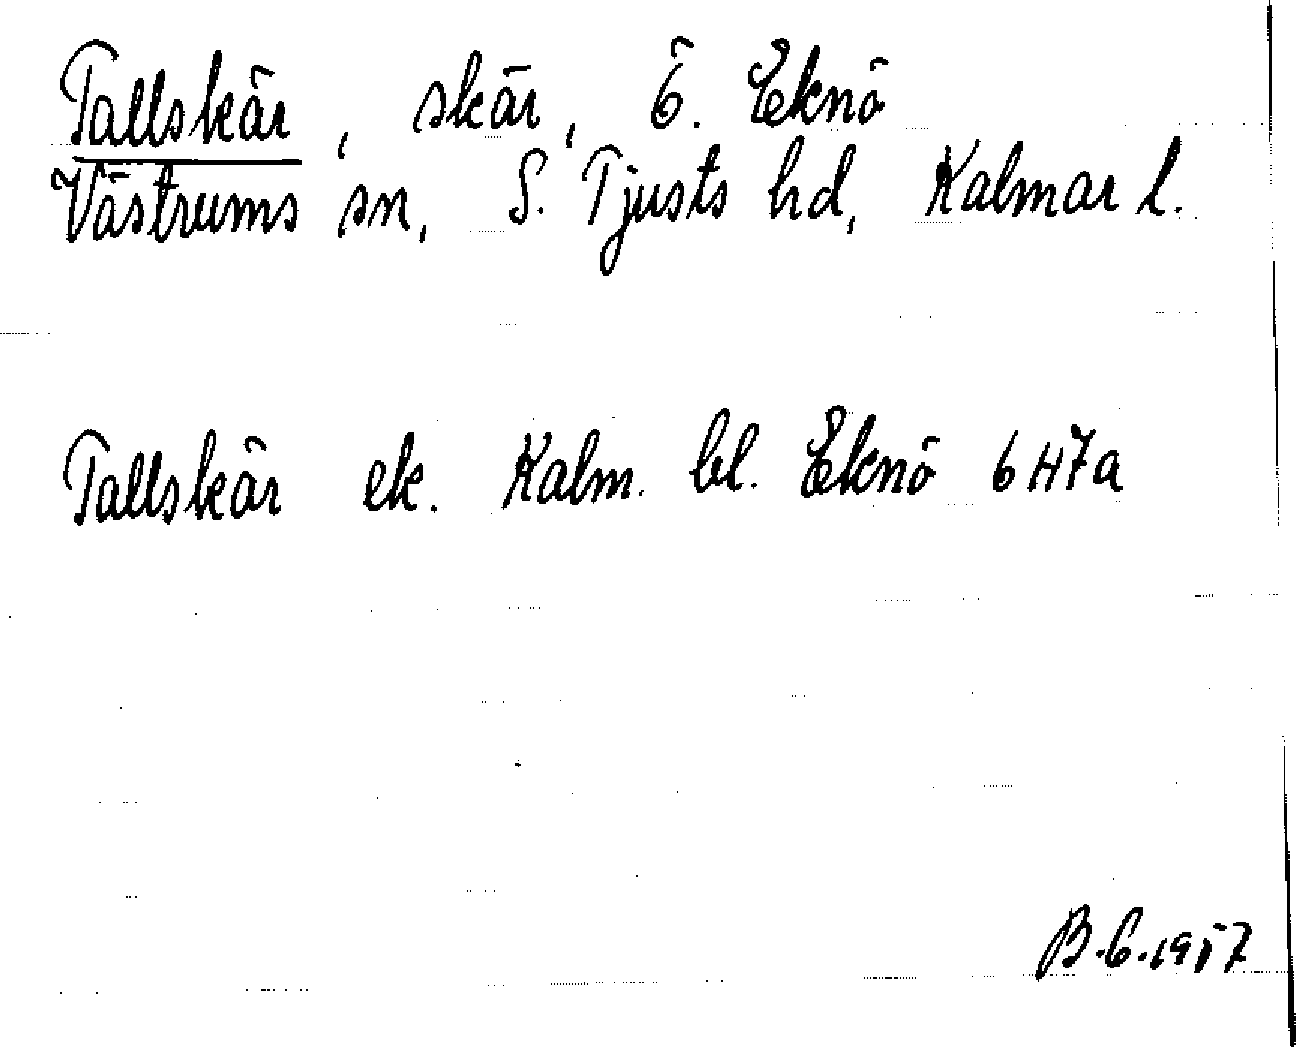 Tallskär, skär, ö. Eknö
Västrums sn, S. Tjusts hd, Kalmar l.
Tallskär ek. Kalm. bl. Eknö 6H7a
B.C.1957